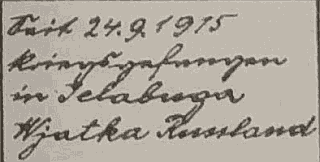 Seit 24.9.1915
kriegsgefangen
in Jelabuga
Wjatka Russland